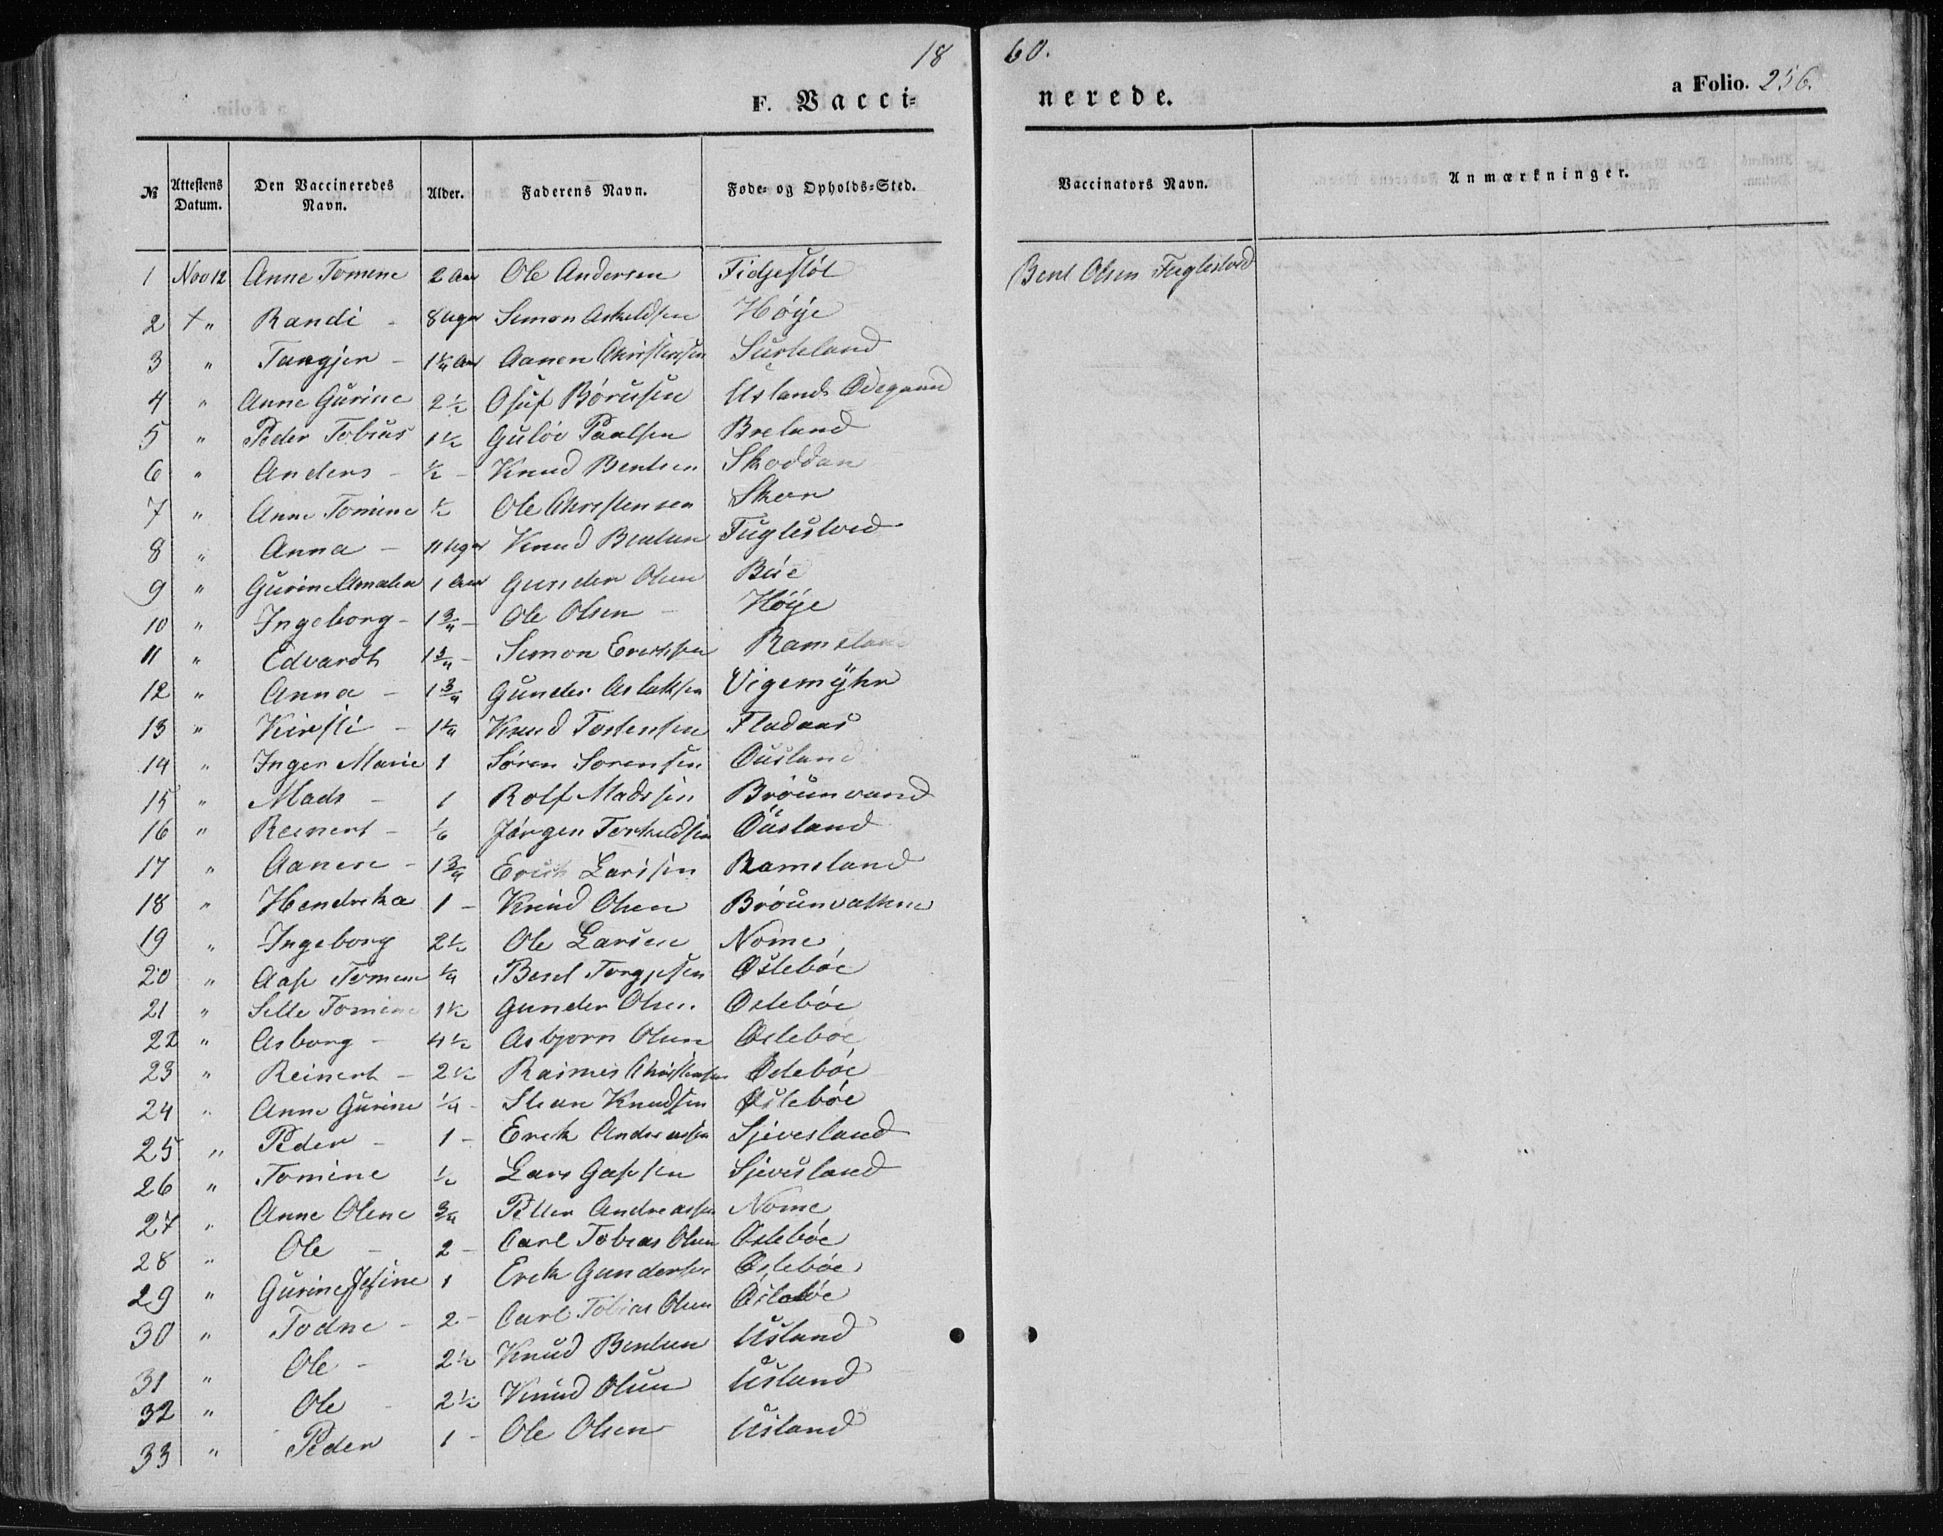 18 60.
F. Vacci= nerede. a Folio. 256.
№ Attestens Datum. Den Vaccineredes Navn. Alder. Faderens Navn. Føde- og Opholds-Sted. Vaccinators Navn. Anmærkninger.
1 Nov 12 Anne Tomine 2 Aar Ole Andersen Fidjestøl Bent Olsen Fuglestved
2 + " Randi - 8 Uger Simon Askeldsen Høÿe
3 " Tangjer - 1¼ Aar Aanen Christensen Surteland
4 " Anne Gurine 2½ Osuf Børusen Uslands Ødegaard
5 " Peder Tobias 1½ Guløv Paalsen Breland
6 " Anders - ½ - Knud Bentsen Skoddan
7 " Anne Tomine ½ Ole Christensen Skarv
8 " Anna - 11 Uger Knud Bentsen Fuglestved
9 " Gurine Amalia 1 Aar Gunder Olsen Bue
10 " Ingeborg - 1¾ - Ole Olsen - Høÿe
11 " Edvardt 1¾ - Simon Ericksen Ramsland
12 " Anna - 1¾ Gunder Aslaksen Vigemÿhr
13 " Kirsti - 1¼ Knud Tostensen Fladaas
14 " Inger Marie 1 Søren Sorensen Ousland
15 " Mads - 1 Rolf Madssen Brøunvand
16 " Reinert - ⅙ Jørgen Torkeldsen Ousland
17 " Aanen - 1¾ Erick Larssen Ramsland
18 " Hendreka 1 - Knud Olsen Brøunvatne
19 " Ingeborg 2½ Ole Larsen Nome
20 " Aase Tomine ¼ Bent Torgjesen Oslebøe
21 " Sille Tomine 1½ Gunder Olsen Oslebøe
22 " Asborg - 4½ Asbjorn Olsen Oslebøe
23 " Reinert - 2½ Rasmus Christensen Oslebøe
24 " Anne Gurine ¼ - Stian Knudsen Oslebøe
25 " Peder - 1 - Erek Andreassen Sjevesland
26 " Tomine ½ Lars Gassen Sjevesland
27 " Anne Olene ¾ Petter Andreassen Nome
28 " Ole - 2 - Carl Tobias Olsen Oslebøe
29 " Gurine Jesine 1 Erek Gundersen Oslebøe
30 " Todne - 2 - Carl Tobias Olsen Oslebøe
31 " Ole - 2½ Knud Bentsen Usland
32 " Ole - 2½ Knud Olsen Usland
33 " Peder 1 - Ole Olsen Usland